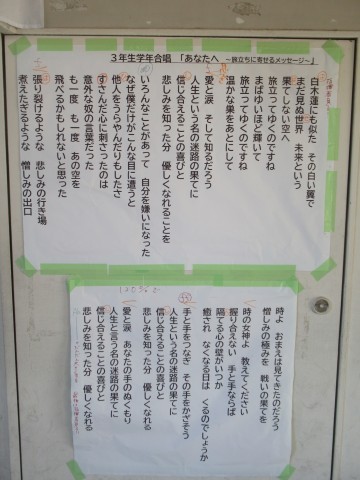 3年生学年合唱 「あなたへ ～旅立ちに寄せるメッセージ～」
白木蓮にも似た その白い翼で
まだ見ぬ世界 未来という
果てしない空へ
旅立ってゆくのですね
まばゆいほど輝いて
旅立ってゆくのですね
温かな巣をあとにして
愛と涙 そして知るだろう
人生という名の迷路の果てに
信じ合えることの喜びと
悲しみを知った分 優しくなれることを
いろんなことがあって 自分を嫌いになった
なぜ僕だけがこんな目に遭うと
他人をうらやんだりもしたさ
すさんだ心に刺さったのは
意外な奴の言葉だった
も一度 も一度 あの空を
飛べるかもしれないと思った
張り裂けるような 悲しみの行き場
煮えたぎるような 憎しみの出口
時よ おまえは見てきたのだろう
憎しみの極みを 戦いの果てを
時の女神よ 教えてください
握り合えない 手と手ならば
隔てる心の壁がいつか
癒され なくなる日は くるのでしょうか
手と手をつなぎ その手をかざそう
人生という名の迷路の果てに
信じ合えることの喜びと
悲しみを知った分 優しくなれる
愛と涙 あなたの手のぬくもり
人生と言う名の迷路の果てに
信じ合えることの喜びと
悲しみを知った分 優しくなれる